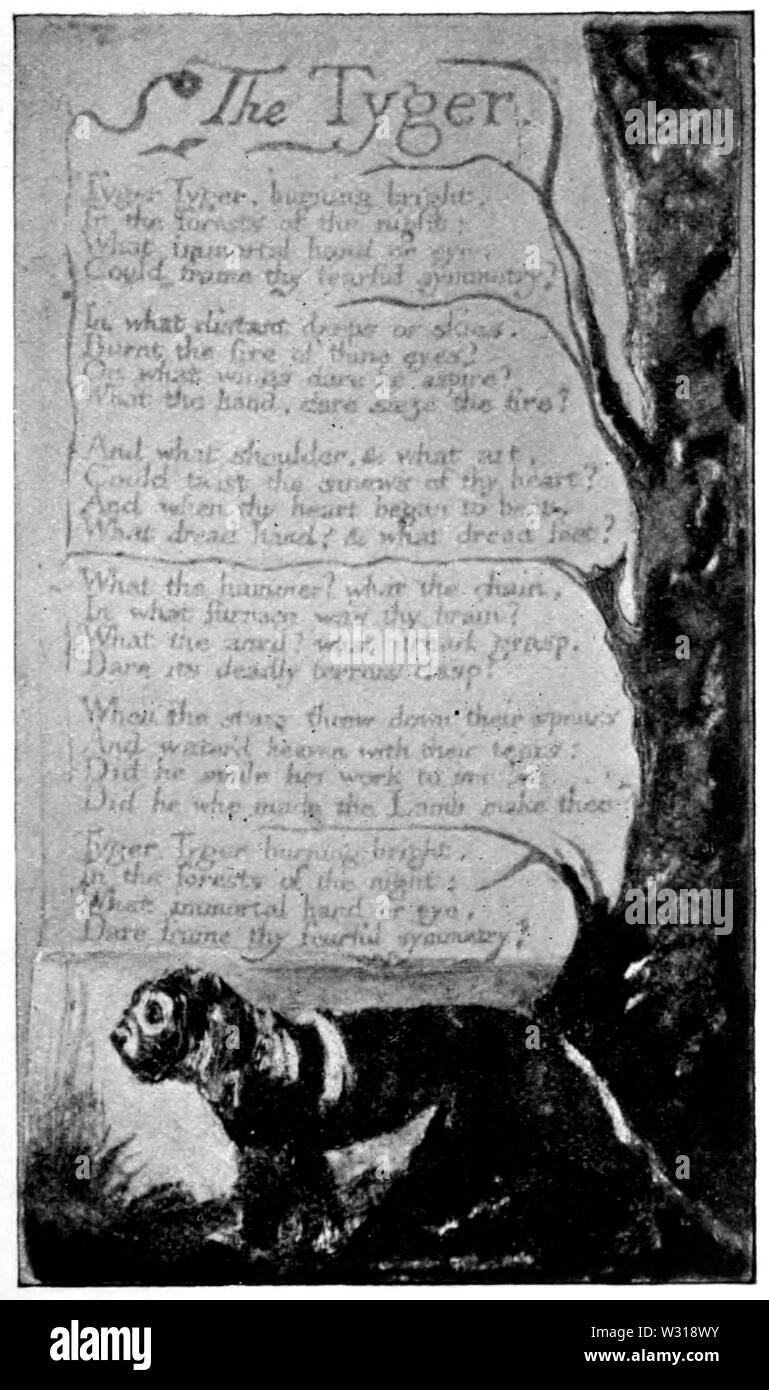 The Tyger.
Tyger Tyger, burning bright,
In the forests of the night;
What immortal hand or eye,
Could frame thy fearful symmetry?
In what distant deeps or skies,
Burnt the fire of thine eyes?
On what wings dare he aspire?
What the hand, dare sieze the fire?
And what shoulder, & what art,
Could twist the sinews of thy heart?
And when thy heart began to beat,
What dread hand? & what dread feet?
What the hammer? what the chain,
In what furnace was thy brain?
What the anvil? what dread grasp,
Dare its deadly terrors clasp?
When the stars threw down their spears
And water'd heaven with their tears:
Did he smile his work to see?
Did he who made the Lamb make thee?
Tyger Tyger burning bright,
In the forests of the night:
What immortal hand or eye,
Dare frame thy fearful symmetry?
alamy
a
a
alamy
a
a
alamy
alamy
Image ID: W318WY
www.alamy.com